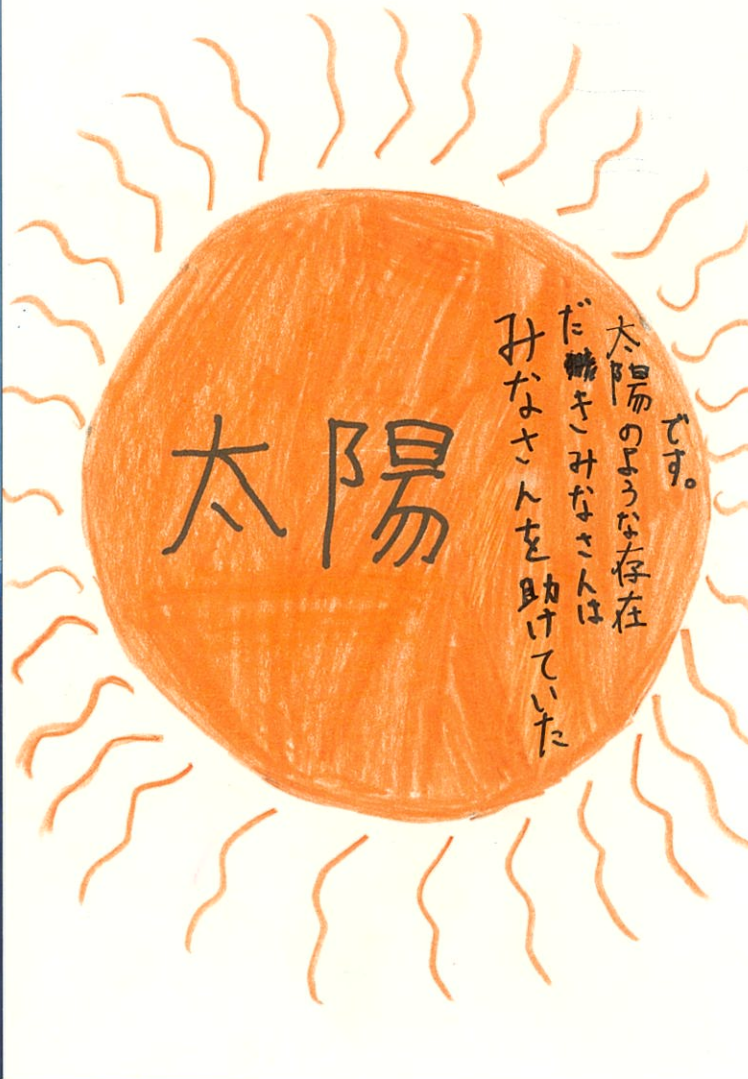 太陽
みなさんを助けていた
だきみなさんは
太陽のような存在
です。